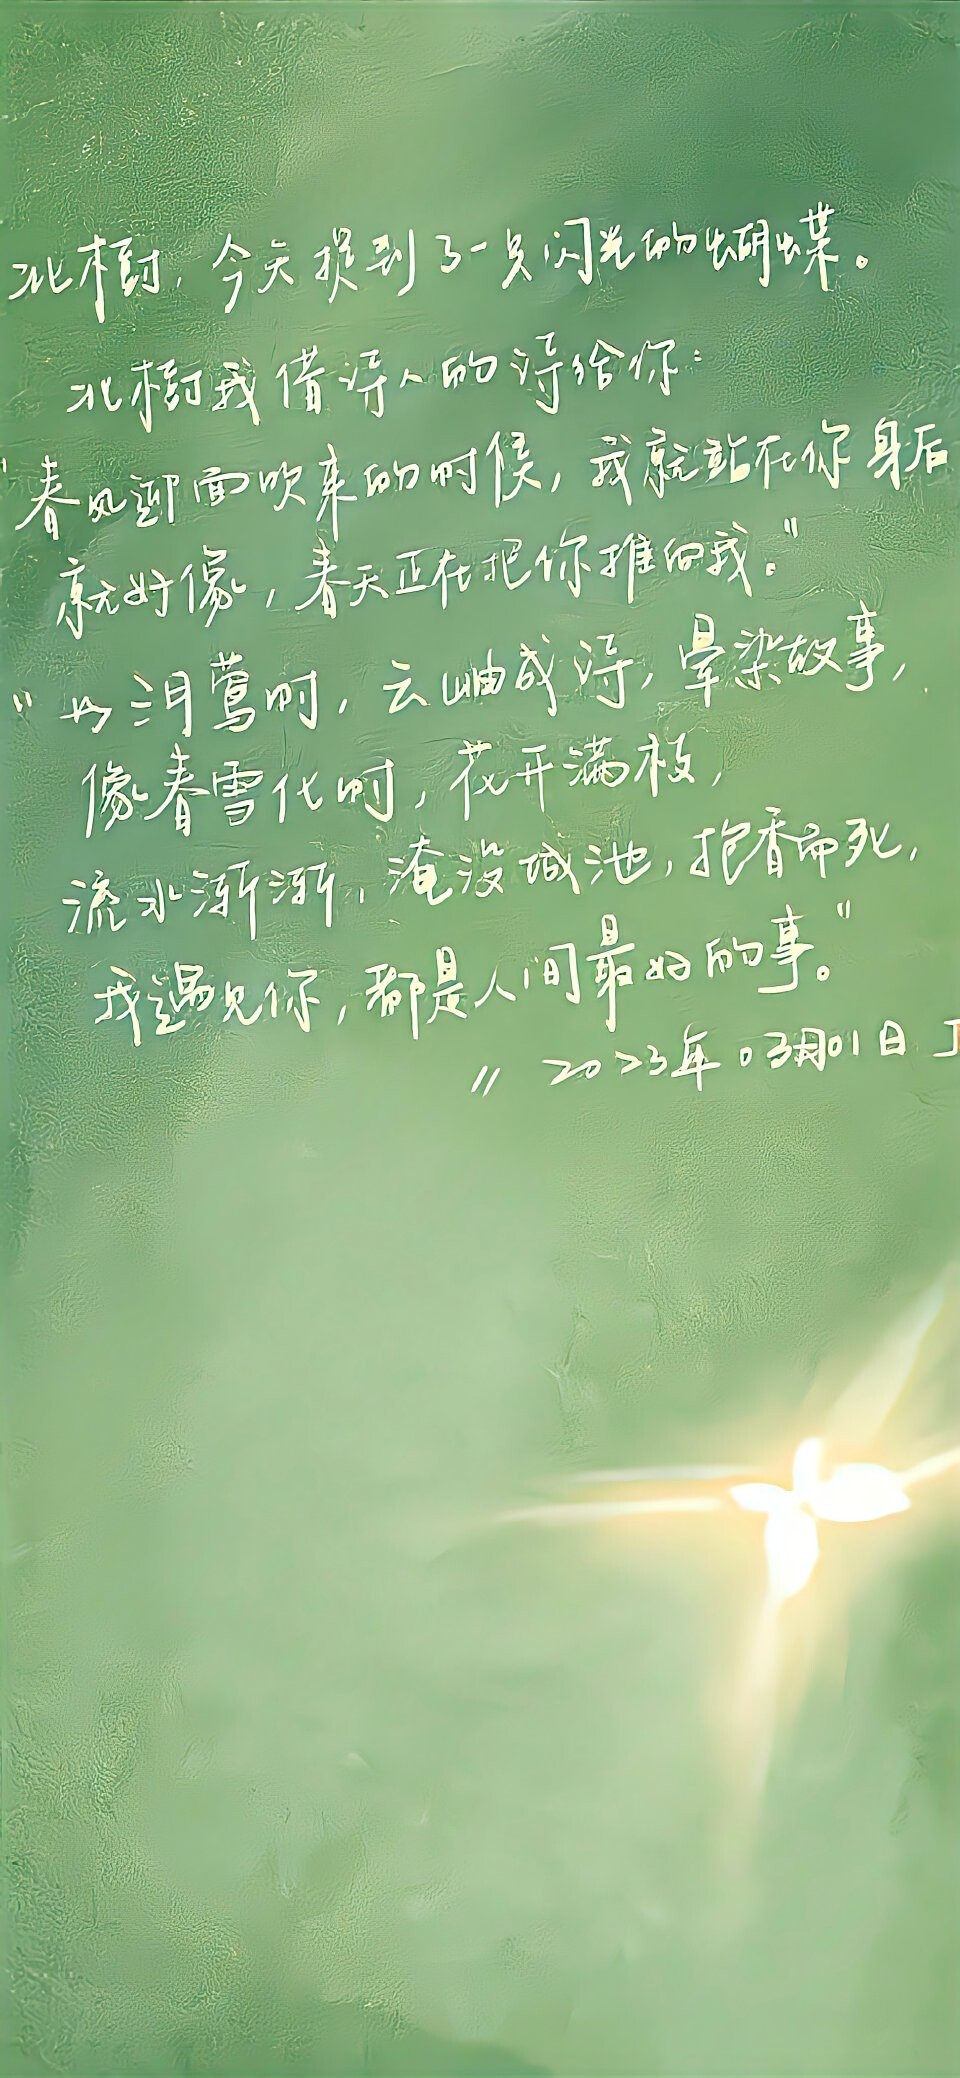 北樹，今天捉到了一只闪光的蝴蝶。
北樹我借诗人的诗给你：
"春风迎面吹来的时候，我就站在你身后
就好像，春天正在把你推向我。"
"如泪莺时，云岫成诗，晕染故事，
像春雪化时，花开满枝，
流水渐渐，淹没城池，抱香而死，
我遇见你，都是人间最好的事。"
〃 2023年03月01日 J